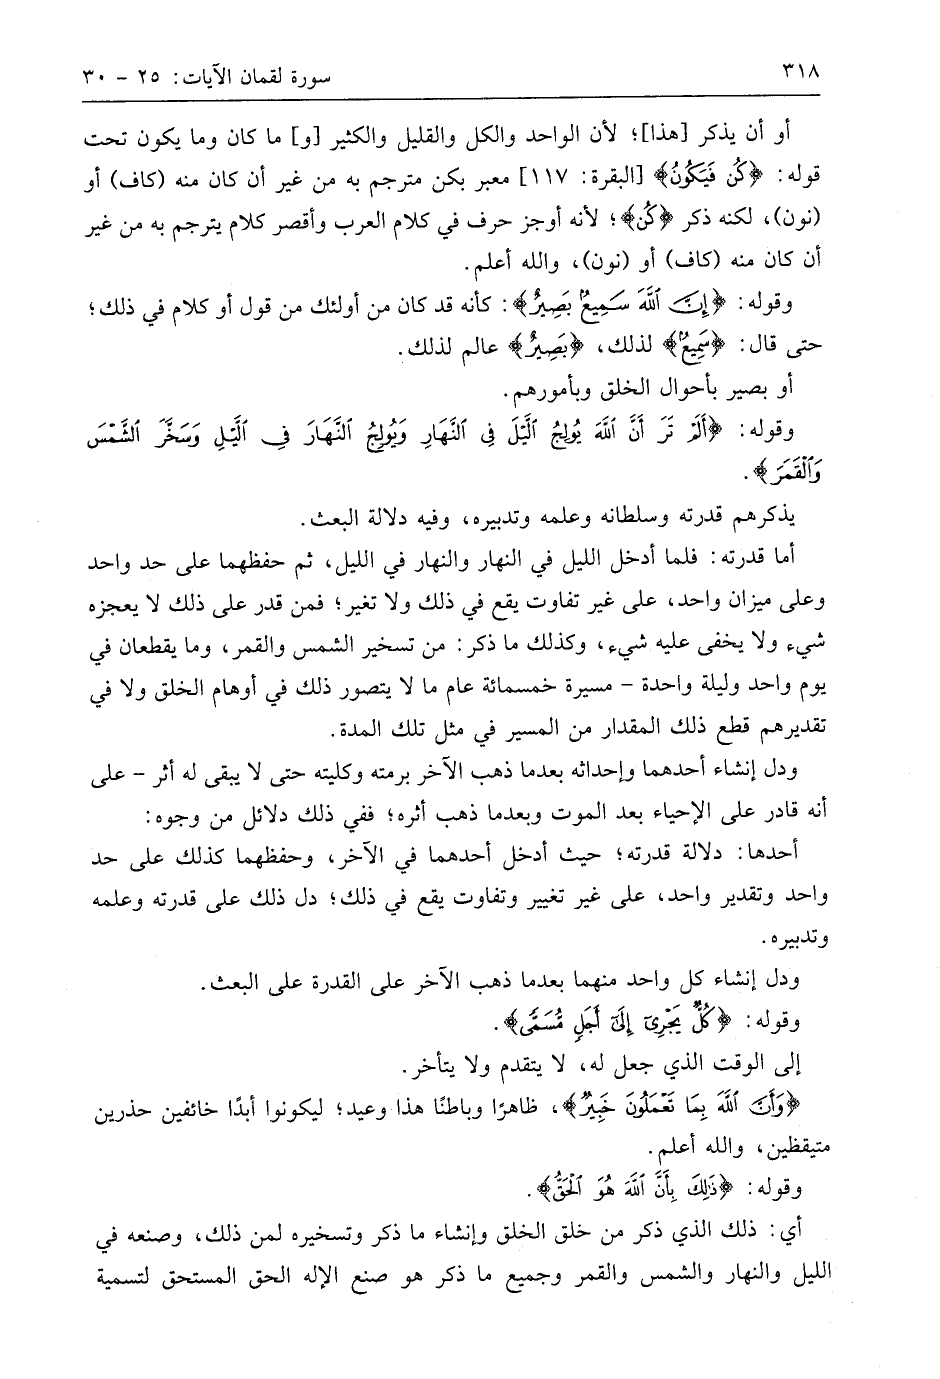 ٣١٨
سورة لقمان الآيات: ٢٥ - ٣٠
أو أن يذكر [هذا]؛ لأن الواحد والكل والقليل والكثير [و] ما كان وما يكون تحت
قوله: ﴿كُن فَيَكُونُ﴾ [البقرة: ١١٧] معبر بكن مترجم به من غير أن كان منه (كاف) أو
(نون)، لكنه ذكر ﴿كُن﴾؛ لأنه أوجز حرف في كلام العرب وأقصر كلام يترجم به من غير
أن كان منه (كاف) أو (نون)، والله أعلم.
وقوله: ﴿إِنَّ ٱللَّهَ سَمِيعٌۢ بَصِيرٌ﴾: كأنه قد كان من أولئك من قول أو كلام في ذلك؛
حتى قال: ﴿سَمِيعٌۢ﴾ لذلك، ﴿بَصِيرٌ﴾ عالم لذلك.
أو بصير بأحوال الخلق وبأمورهم.
وقوله: ﴿أَلَمْ تَرَ أَنَّ ٱللَّهَ يُولِجُ ٱلَّيْلَ فِى ٱلنَّهَارِ وَيُولِجُ ٱلنَّهَارَ فِى ٱلَّيْلِ وَسَخَّرَ ٱلشَّمْسَ
وَٱلْقَمَرَ﴾.
يذكرهم قدرته وسلطانه وعلمه وتدبيره، وفيه دلالة البعث.
أما قدرته: فلما أدخل الليل في النهار والنهار في الليل، ثم حفظهما على حد واحد
وعلى ميزان واحد، على غير تفاوت يقع في ذلك ولا تغير؛ فمن قدر على ذلك لا يعجزه
شيء ولا يخفى عليه شيء، وكذلك ما ذكر: من تسخير الشمس والقمر، وما يقطعان في
يوم واحد وليلة واحدة - مسيرة خمسمائة عام ما لا يتصور ذلك في أوهام الخلق ولا في
تقديرهم قطع ذلك المقدار من المسير في مثل تلك المدة.
ودل إنشاء أحدهما وإحداثه بعدما ذهب الآخر برمته وكليته حتى لا يبقى له أثر - على
أنه قادر على الإحياء بعد الموت وبعدما ذهب أثره؛ ففي ذلك دلائل من وجوه:
أحدها: دلالة قدرته؛ حيث أدخل أحدهما في الآخر، وحفظهما كذلك على حد
واحد وتقدير واحد، على غير تغيير وتفاوت يقع في ذلك؛ دل ذلك على قدرته وعلمه
وتدبيره.
ودل إنشاء كل واحد منهما بعدما ذهب الآخر على القدرة على البعث.
وقوله: ﴿كُلٌّ يَجْرِىٓ إِلَىٰٓ أَجَلٍ مُّسَمًّى﴾.
إلى الوقت الذي جعل له، لا يتقدم ولا يتأخر.
﴿وَأَنَّ ٱللَّهَ بِمَا تَعْمَلُونَ خَبِيرٌ﴾، ظاهرًا وباطنًا هذا وعيد؛ ليكونوا أبدًا خائفين حذرين
متيقظين، والله أعلم.
وقوله: ﴿ذَٰلِكَ بِأَنَّ ٱللَّهَ هُوَ ٱلْحَقُّ﴾.
أي: ذلك الذي ذكر من خلق الخلق وإنشاء ما ذكر وتسخيره لمن ذلك، وصنعه في
الليل والنهار والشمس والقمر وجميع ما ذكر هو صنع الإله الحق المستحق لتسمية